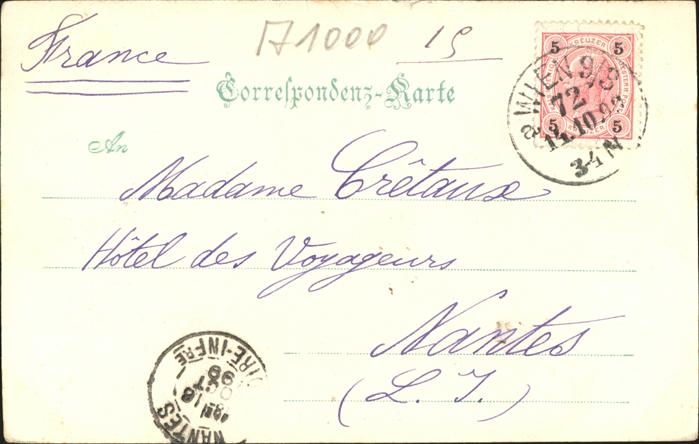 France
A1000
15
Correspondenz-Karte
An
Madame Crétaux
Hôtel des Voyageurs
Nantes
(L. I.)
5 KREUZER 5
5 5
WIEN 9/3
72
14.10.99
3-4 N
NANTES
16
OCT
99
LOIRE-INFRE